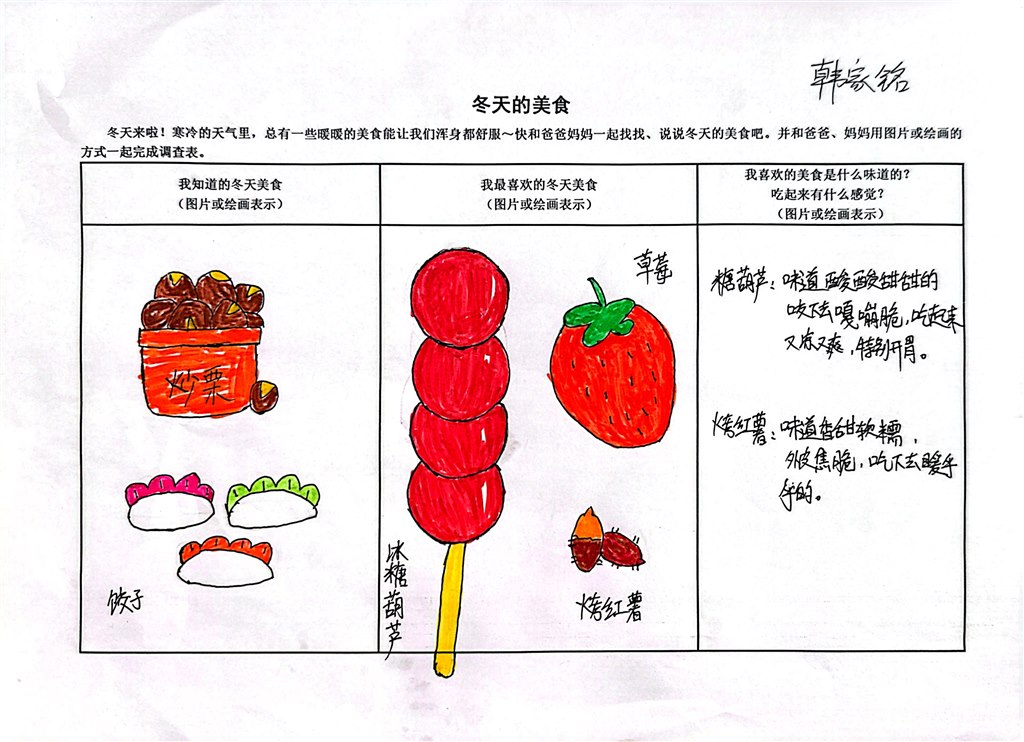 韩家铭
冬天的美食
冬天来啦！寒冷的天气里，总有一些暖暖的美食能让我们浑身都舒服～快和爸爸妈妈一起找找、说说冬天的美食吧。并和爸爸、妈妈用图片或绘画的
方式一起完成调查表。
我知道的冬天美食
（图片或绘画表示）
我最喜欢的冬天美食
（图片或绘画表示）
我喜欢的美食是什么味道的？
吃起来有什么感觉？
（图片或绘画表示）
炒栗
饺子
冰糖葫芦
草莓
烤红薯
糖葫芦：味道酸酸甜甜的
咬下去嘎嘣脆，吃起来
又冻又爽，特别开胃。
烤红薯：味道香甜软糯，
外皮焦脆，吃下去暖乎
乎的。